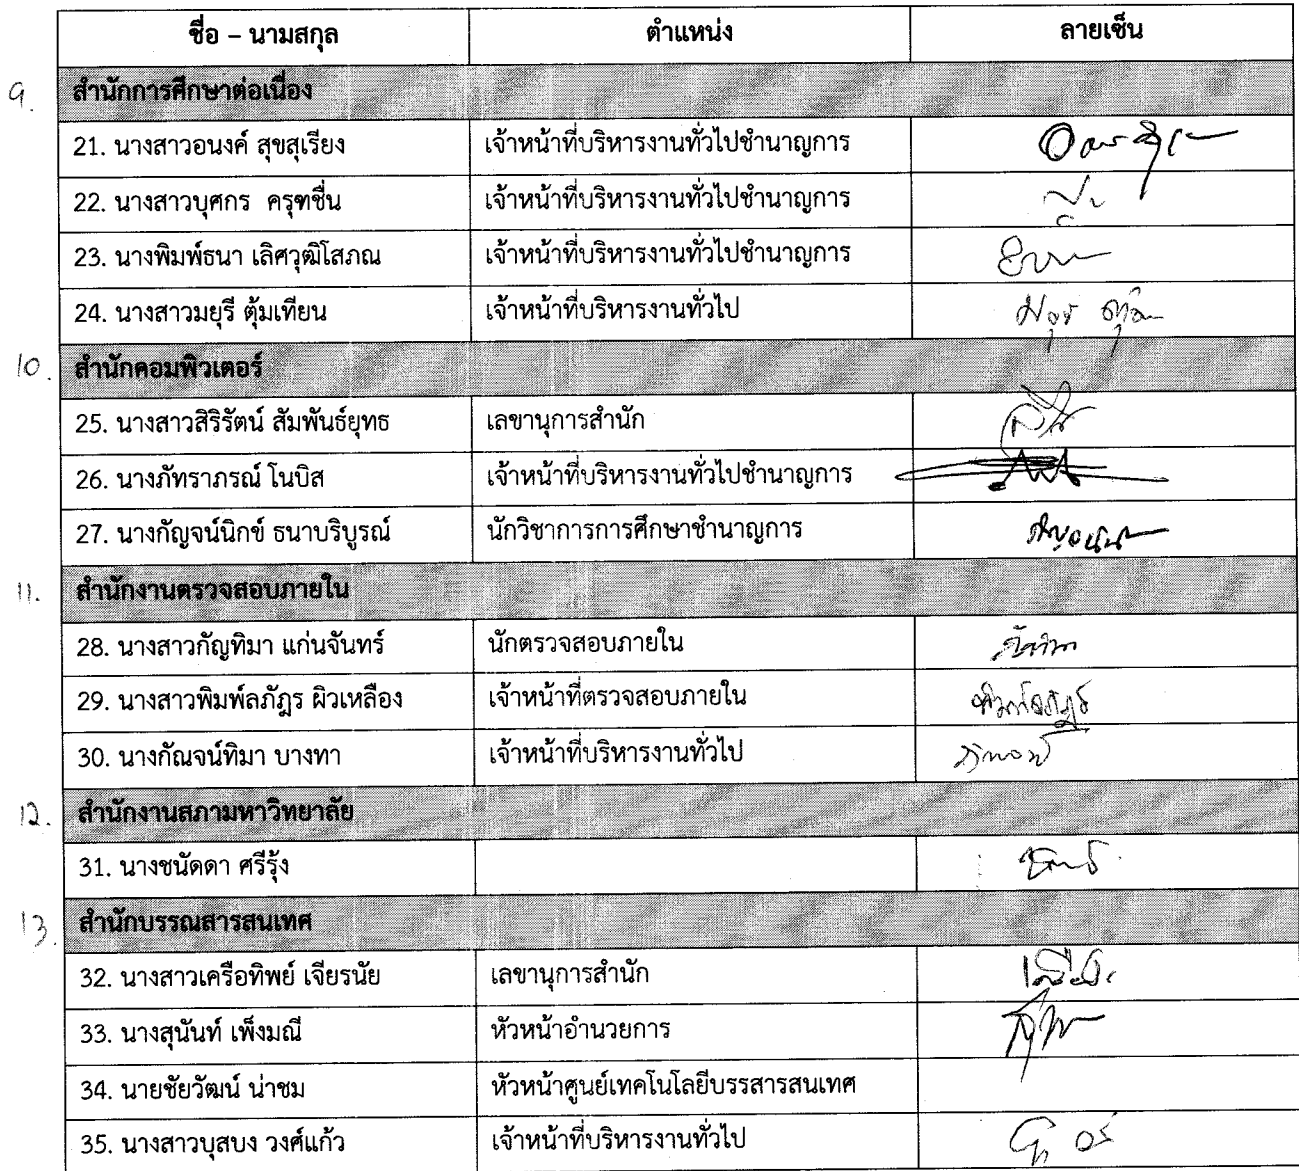 ชื่อ – นามสกุล ตำแหน่ง ลายเซ็น
9. สำนักการศึกษาต่อเนื่อง
21. นางสาวอนงค์ สุขสุเรียง เจ้าหน้าที่บริหารงานทั่วไปชำนาญการ
22. นางสาวบุศกร ครุฑชื่น เจ้าหน้าที่บริหารงานทั่วไปชำนาญการ
23. นางพิมพ์ธนา เลิศวุฒิโสภณ เจ้าหน้าที่บริหารงานทั่วไปชำนาญการ
24. นางสาวมยุรี ตุ้มเทียน เจ้าหน้าที่บริหารงานทั่วไป
10. สำนักคอมพิวเตอร์
25. นางสาวสิริรัตน์ สัมพันธ์ยุทธ เลขานุการสำนัก
26. นางภัทราภรณ์ โนบิส เจ้าหน้าที่บริหารงานทั่วไปชำนาญการ
27. นางกัญจน์นิกข์ ธนาบริบูรณ์ นักวิชาการการศึกษาชำนาญการ
11. สำนักงานตรวจสอบภายใน
28. นางสาวกัญทิมา แก่นจันทร์ นักตรวจสอบภายใน
29. นางสาวพิมพ์ลภัฎร ผิวเหลือง เจ้าหน้าที่ตรวจสอบภายใน
30. นางกัณจน์ทิมา บางทา เจ้าหน้าที่บริหารงานทั่วไป
12. สำนักงานสภามหาวิทยาลัย
31. นางชนัดดา ศรีรุ้ง
13. สำนักบรรณสารสนเทศ
32. นางสาวเครือทิพย์ เจียรนัย เลขานุการสำนัก
33. นางสุนันท์ เพ็งมณี หัวหน้าอำนวยการ
34. นายชัยวัฒน์ น่าชม หัวหน้าศูนย์เทคโนโลยีบรรสารสนเทศ
35. นางสาวบุสบง วงศ์แก้ว เจ้าหน้าที่บริหารงานทั่วไป